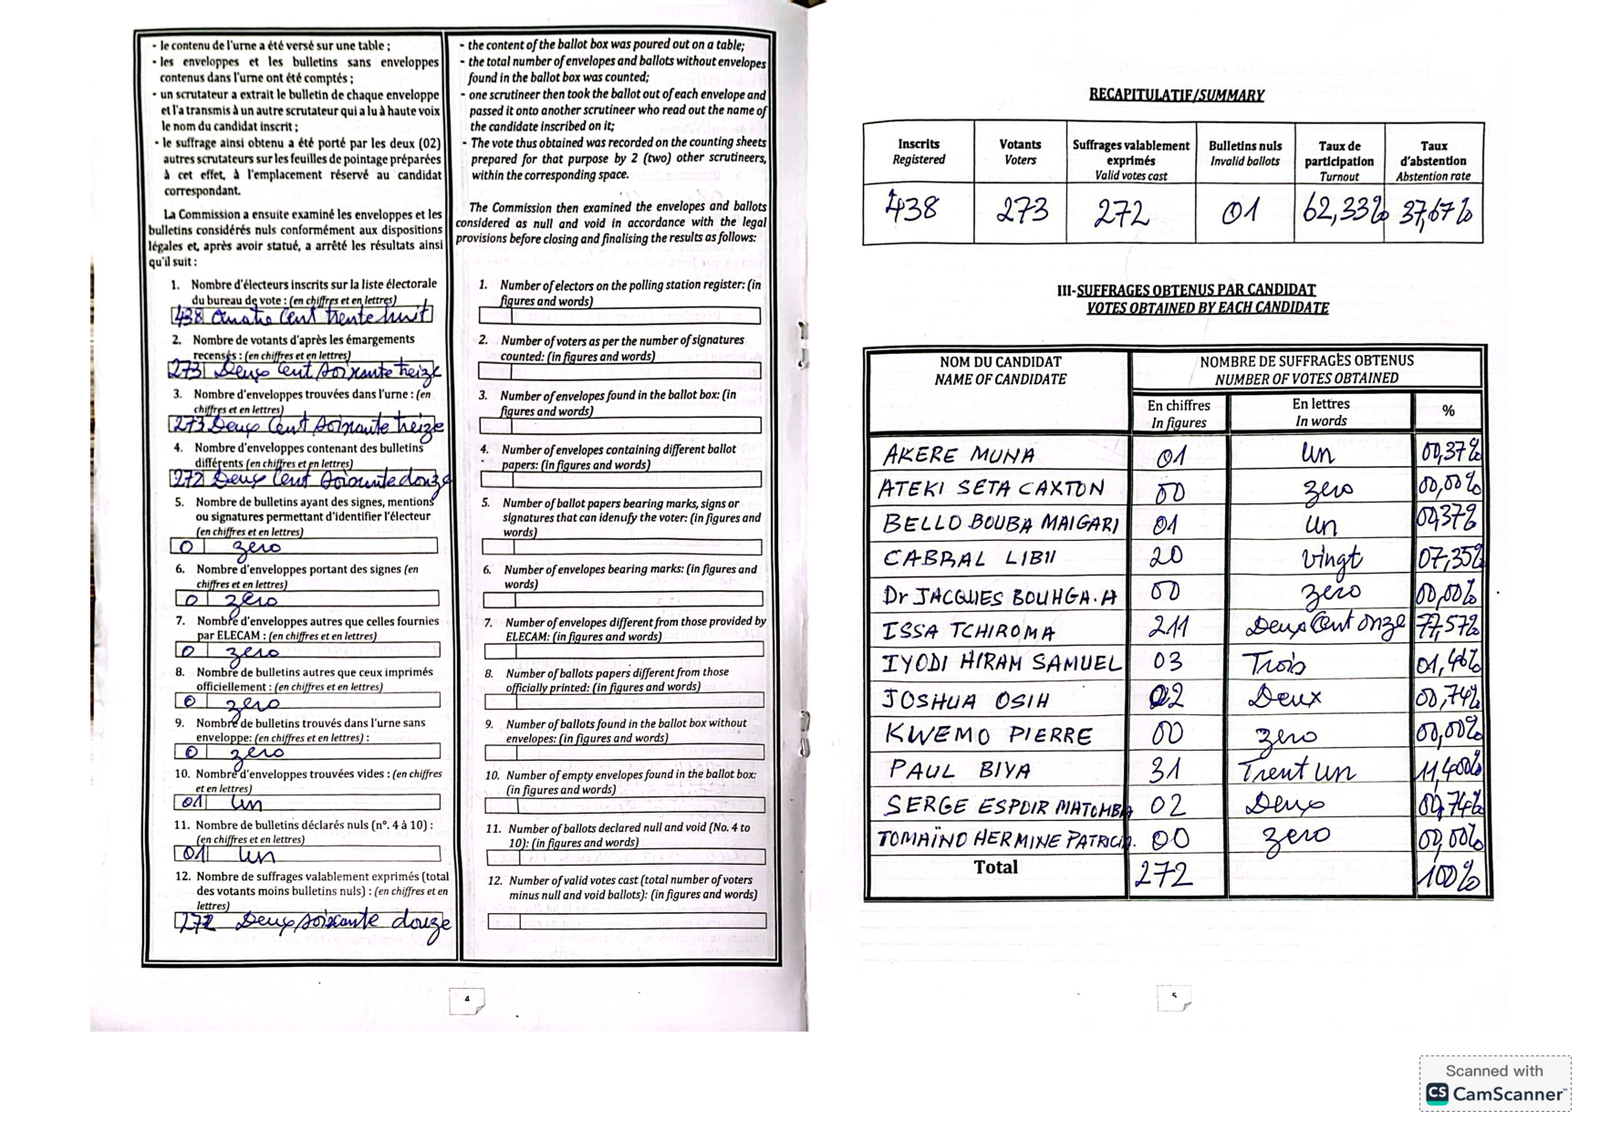 - le contenu de l'urne a été versé sur une table ;
- les enveloppes et les bulletins sans enveloppes
contenus dans l'urne ont été comptés ;
- un scrutateur a extrait le bulletin de chaque enveloppe
et l'a transmis à un autre scrutateur qui a lu à haute voix
le nom du candidat inscrit ;
- le suffrage ainsi obtenu a été porté par les deux (02)
autres scrutateurs sur les feuilles de pointage préparées
à cet effet, à l'emplacement réservé au candidat
correspondant.
La Commission a ensuite examiné les enveloppes et les
bulletins considérés nuls conformément aux dispositions
légales et, après avoir statué, a arrêté les résultats ainsi
qu'il suit :
1. Nombre d'électeurs inscrits sur la liste électorale
du bureau de vote : (en chiffres et en lettres)
438 Quatre Cent trente huit
2. Nombre de votants d'après les émargements
recensés : (en chiffres et en lettres)
273 Deux Cent soixante treize
3. Nombre d'enveloppes trouvées dans l'urne : (en
chiffres et en lettres)
273 Deux Cent soixante treize
4. Nombre d'enveloppes contenant des bulletins
différents (en chiffres et en lettres)
272 Deux Cent soixante douze
5. Nombre de bulletins ayant des signes, mentions
ou signatures permettant d'identifier l'électeur
(en chiffres et en lettres)
0 zero
6. Nombre d'enveloppes portant des signes (en
chiffres et en lettres)
0 zero
7. Nombre d'enveloppes autres que celles fournies
par ELECAM : (en chiffres et en lettres)
0 zero
8. Nombre de bulletins autres que ceux imprimés
officiellement : (en chiffres et en lettres)
0 zero
9. Nombre de bulletins trouvés dans l'urne sans
enveloppe: (en chiffres et en lettres) :
0 zero
10. Nombre d'enveloppes trouvées vides : (en chiffres
et en lettres)
01 un
11. Nombre de bulletins déclarés nuls (n°. 4 à 10) :
(en chiffres et en lettres)
01 un
12. Nombre de suffrages valablement exprimés (total
des votants moins bulletins nuls) : (en chiffres et en
lettres)
272 Deux soixante douze
- the content of the ballot box was poured out on a table;
- the total number of envelopes and ballots without envelopes
found in the ballot box was counted;
- one scrutineer then took the ballot out of each envelope and
passed it onto another scrutineer who read out the name of
the candidate inscribed on it;
- The vote thus obtained was recorded on the counting sheets
prepared for that purpose by 2 (two) other scrutineers,
within the corresponding space.
The Commission then examined the envelopes and ballots
considered as null and void in accordance with the legal
provisions before closing and finalising the results as follows:
1. Number of electors on the polling station register: (in
figures and words)
2. Number of voters as per the number of signatures
counted: (in figures and words)
3. Number of envelopes found in the ballot box: (in
figures and words)
4. Number of envelopes containing different ballot
papers: (in figures and words)
5. Number of ballot papers bearing marks, signs or
signatures that can idenufy the voter: (in figures and
words)
6. Number of envelopes bearing marks: (in figures and
words)
7. Number of envelopes different from those provided by
ELECAM: (in figures and words)
8. Number of ballots papers different from those
officially printed: (in figures and words)
9. Number of ballots found in the ballot box without
envelopes: (in figures and words)
10. Number of empty envelopes found in the ballot box:
(in figures and words)
11. Number of ballots declared null and void (No. 4 to
10): (in figures and words)
12. Number of valid votes cast (total number of voters
minus null and void ballots): (in figures and words)
4
RECAPITULATIF/SUMMARY
Inscrits Votants Suffrages valablement Bulletins nuls Taux de Taux
Registered Voters exprimés Invalid ballots participation d'abstention
Valid votes cast Turnout Abstention rate
438 273 272 01 62,33% 37,67%
III-SUFFRAGES OBTENUS PAR CANDIDAT
VOTES OBTAINED BY EACH CANDIDATE
NOM DU CANDIDAT NOMBRE DE SUFFRAGES OBTENUS
NAME OF CANDIDATE NUMBER OF VOTES OBTAINED
En chiffres En lettres %
In figures In words
AKERE MUNA 01 un 00,37%
ATEKI SETA CAXTON 00 zero 00,00%
BELLO BOUBA MAIGARI 01 un 00,37%
CABRAL LIBII 20 vingt 07,35%
Dr JACQUES BOUHGA.H 00 zero 00,00%
ISSA TCHIROMA 211 Deux Cent onze 77,57%
IYODI HIRAM SAMUEL 03 Trois 01,46%
JOSHUA OSIH 02 Deux 00,74%
KWEMO PIERRE 00 zero 00,00%
PAUL BIYA 31 Trent un 11,400%
SERGE ESPOIR MATOMBA 02 Deux 00,74%
TOMAÏNO HERMINE PATRICIA. 00 zero 00,00%
Total 272 100%
5
Scanned with
CS CamScanner